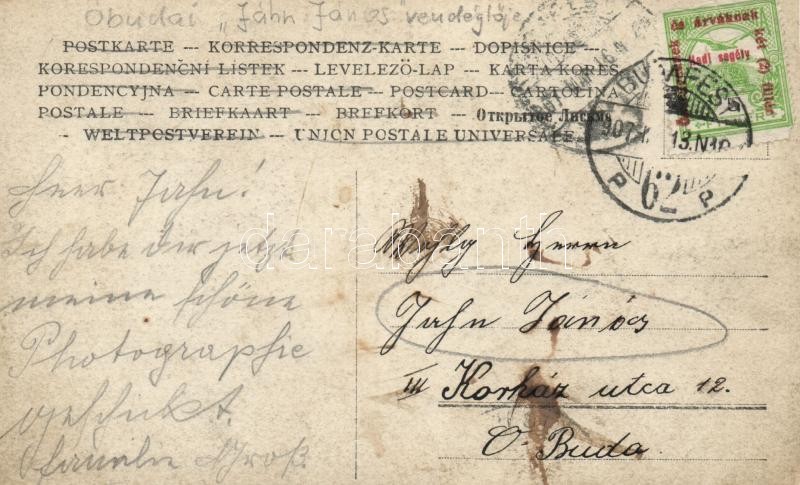 Óbudai „Jahn János" vendéglője
POSTKARTE -- KORRESPONDENZ-KARTE -- DOPISNICE --
KORESPONDENČNÍ LÍSTEK -- LEVELEZÖ-LAP -- KARTA KORES-
PONDENCYJNA -- CARTE POSTALE -- POSTCARD -- CARTOLINA
POSTALE -- BRIEFKAART -- BREFKORT -- Открытое Письмо
-- WELTPOSTVEREIN -- UNION POSTALE UNIVERSALE --
Hadi segély
BUDAPEST
13.N10
62
P P
Herr Jahn!
Ich habe dir jetzt
meine schöne
Photographie
geschickt.
Familie Groß
Herrn
Jahn János
III Korház utca 12.
O-Buda
darabanth